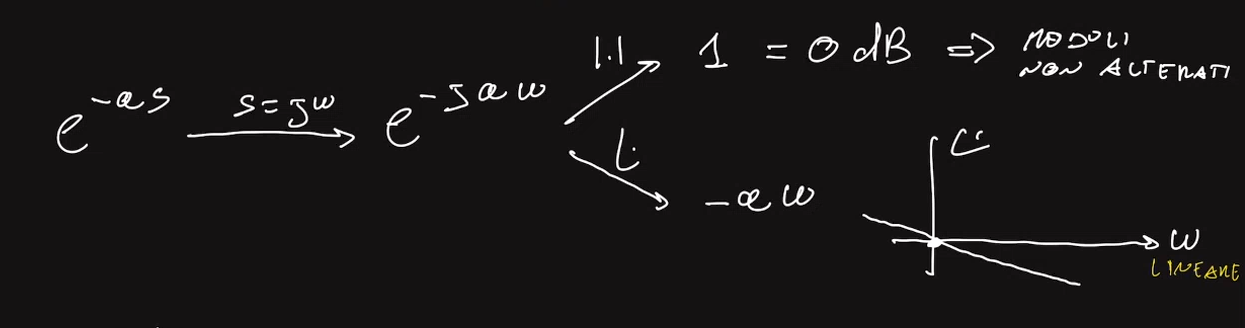 e^{-as} \xrightarrow{s=j\omega} e^{-ja\omega}
|.| 1 = 0 dB => MODULI NON ALTERATI
∠. -aω
∠.
ω
LINEARE